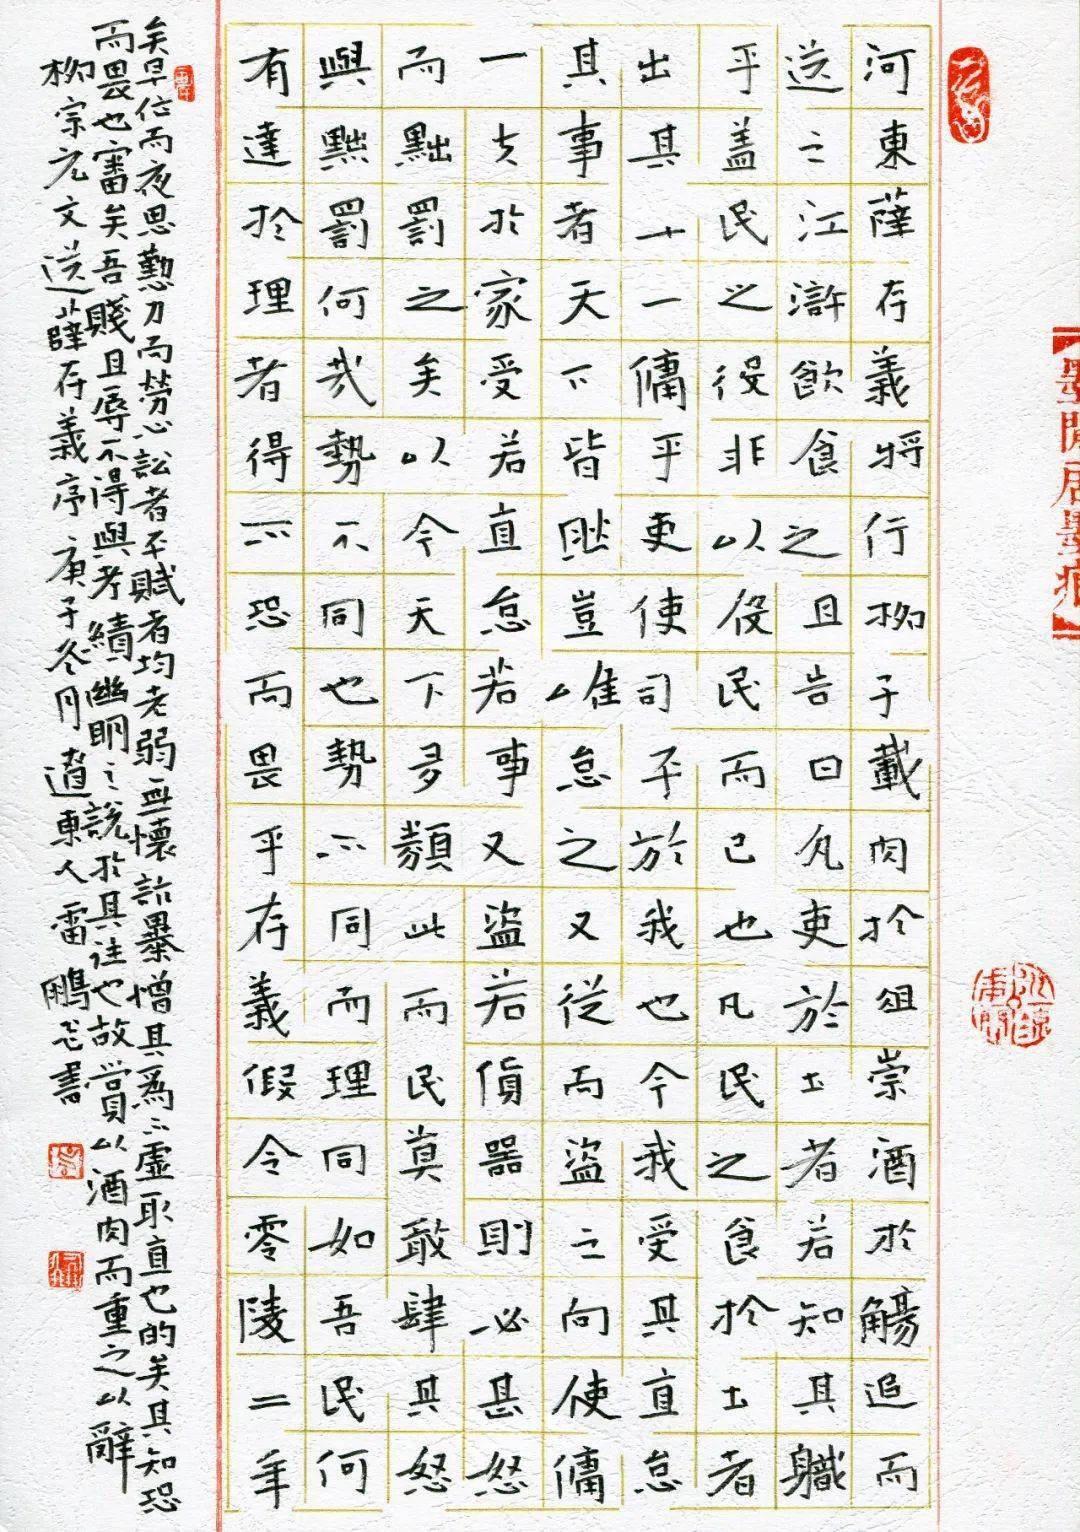 河東薛存義將行柳子載肉於俎崇酒於觴追而
送之江滸飲食之且告曰凡吏於土者若知其職
乎盖民之役非以役民而已也凡民之食於土者
出其十一傭乎吏使司平於我也今我受其直怠
其事者天下皆然豈唯怠之又從而盜之向使傭
一夫於家受若直怠若事又盜若貨器則必甚怒
而黜罰之矣以今天下多類此而民莫敢肆其怒
與黜罰何哉勢不同也勢不同而理同如吾民何
有達於理者得不恐而畏乎存義假令零陵二年
矣早作而夜思勤力而勞心訟者平賦者均老弱無懷詐暴憎其爲不虛取直也的矣其知恐
而畏也審矣吾賤且辱不得與考績幽明之說於其往也故賞以酒肉而重之以辭
柳宗元文送薛存義序庚子冬月遼東人雷鵬飛書